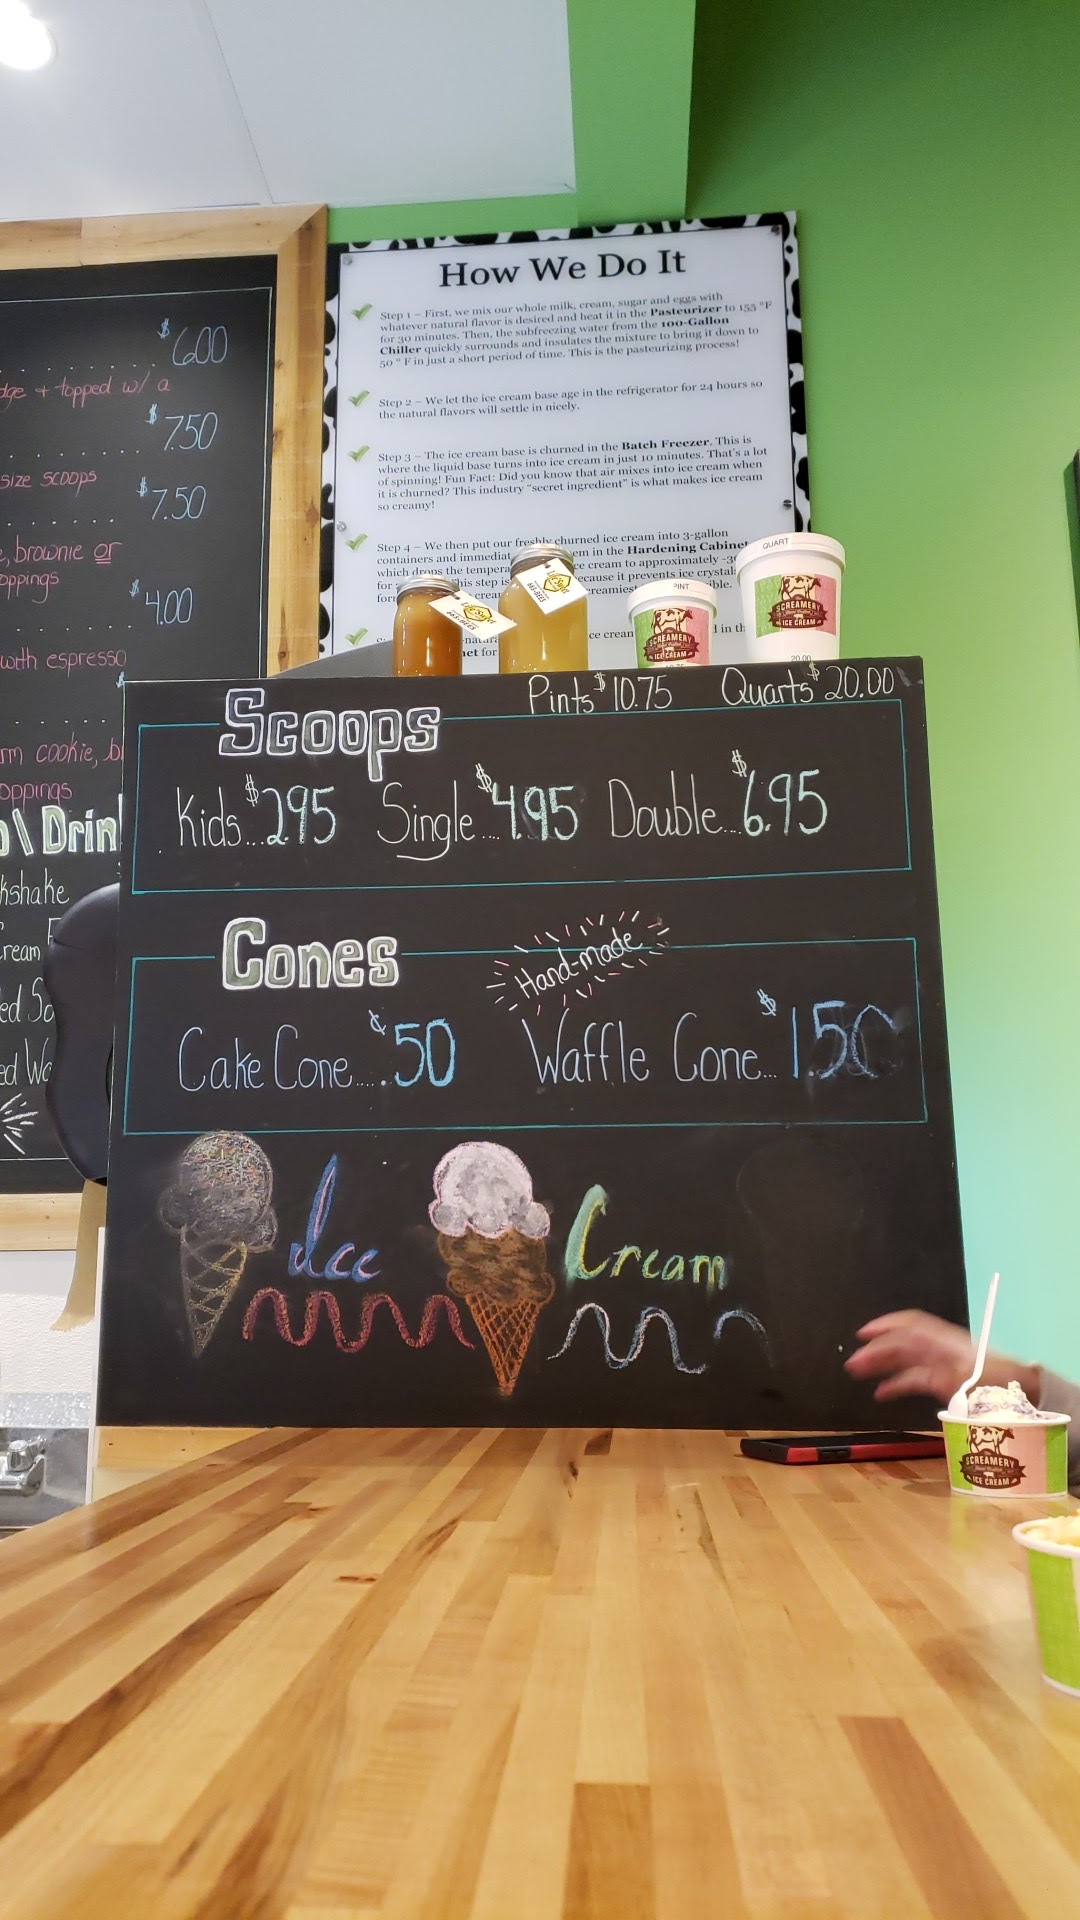 $6.00
dge + topped w/ a
$7.50
size scoops
$7.50
brownie or
oppings
$4.00
with espresso
cookie,
oppings
Drin
kshake
ream
ed So
ed Wa
How We Do It
Step 1 – First, we mix our whole milk, cream, sugar and eggs with
whatever natural flavor is desired and heat it in the Pasteurizer to 155 °F
for 30 minutes. Then, the subfreezing water from the 100-Gallon
Chiller quickly surrounds and insulates the mixture to bring it down to
50 ° F in just a short period of time. This is the pasteurizing process!
Step 2 – We let the ice cream base age in the refrigerator for 24 hours so
the natural flavors will settle in nicely.
Step 3 – The ice cream base is churned in the Batch Freezer. This is
where the liquid base turns into ice cream in just 10 minutes. That's a lot
of spinning! Fun Fact: Did you know that air mixes into ice cream when
it is churned? This industry "secret ingredient" is what makes ice cream
so creamy!
Step 4 – We then put our freshly churned ice cream into 3-gallon
containers and immediat em in the Hardening Cabinet
which drops the tempera ce cream to approximately
his step is cause it prevents ice crystal
creamiest
ice cream d in th
for
PINT
SCREAMERY
ICE CREAM
QUART
SCREAMERY
ICE CREAM
20.00
Pints $10.75 Quarts $20.00
Scoops
Kids...$2.95 Single....$4.95 Double...$6.95
Cones
Hand-made
Cake Cone.....¢.50 Waffle Cone...$1.50
Ice Cream
SCREAMERY
ICE CREAM